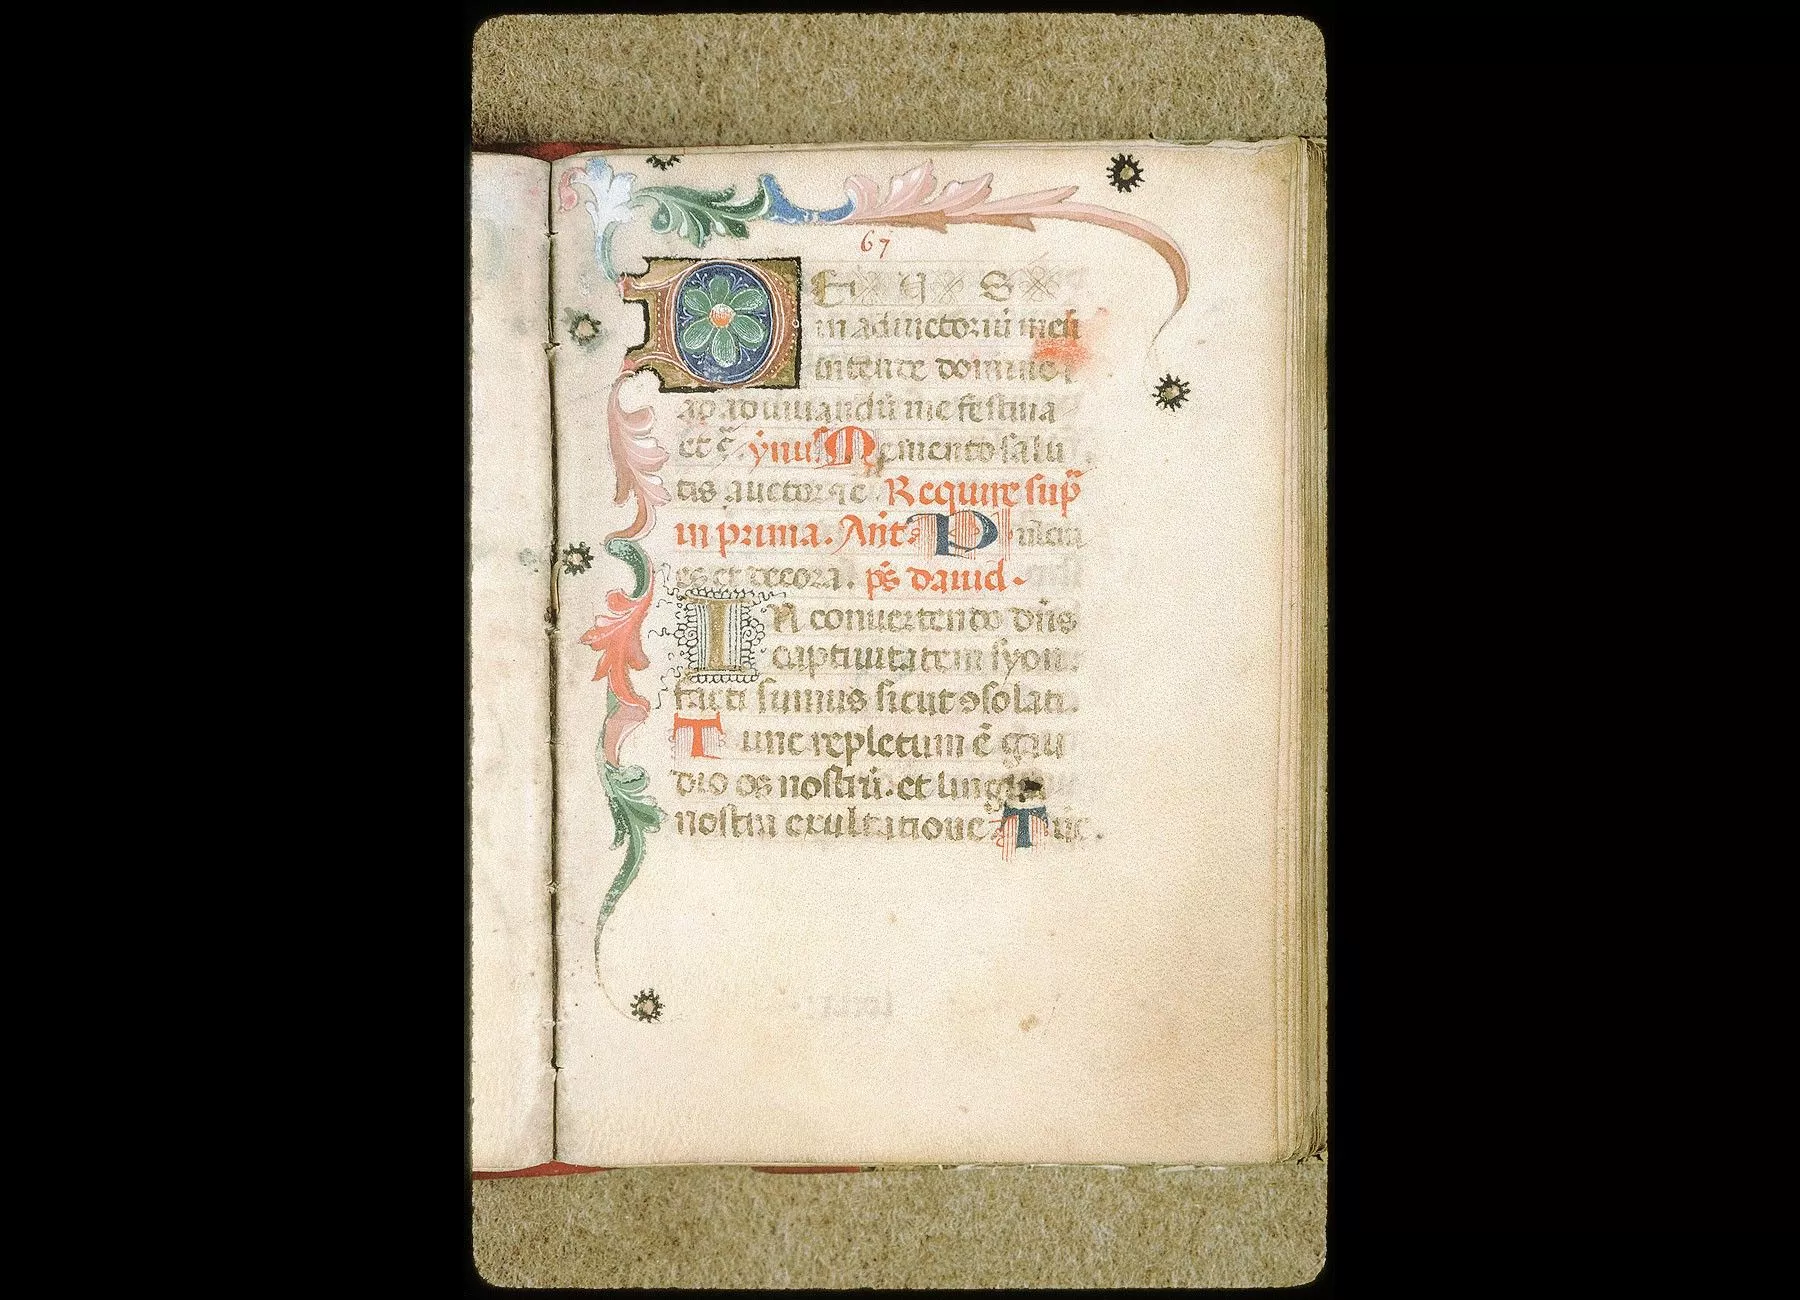 67
DEUS
in adiutoriũ meũ
intende domine
ad adiuuandũ me festina
et c̃. ỹnus. Memento salu
tis auctor qe. Require sup̃
in prima. Añt. P
es et decora. p̃s dauid.
IN conuertendo dñs
captiuitatem syon:
facti sumus sicut ꝯsolati.
Tunc repletum ẽ gau
dio os nostrũ. et lingua
nostra exultatione. Tũc.